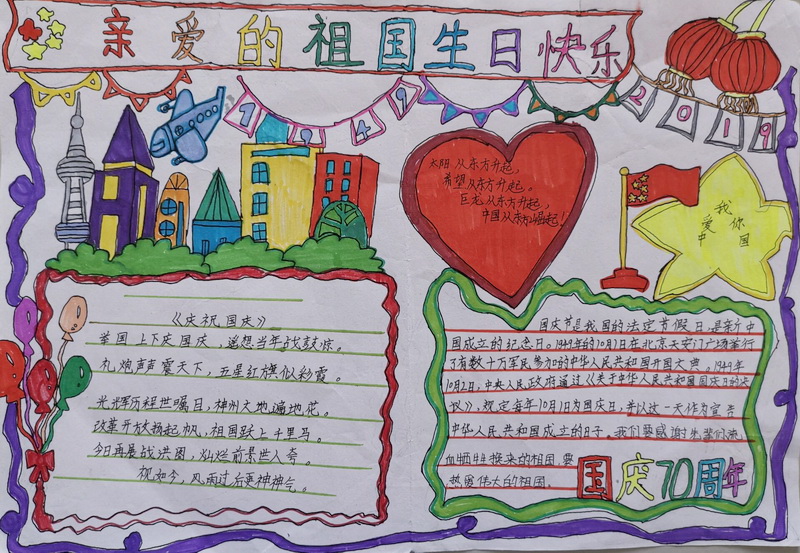 亲爱的祖国生日快乐
1949
2019
太阳从东方升起,
希望从东方升起。
巨龙从东方升起,
中国从东方崛起!
我
爱你
中国
《庆祝国庆》
举国上下庆国庆,遥想当年战鼓惊。
礼炮声声震天下,五星红旗似彩霞。
光辉历程世瞩目,神州大地遍地花。
改革开放扬起帆,祖国跃上千里马。
今日再展战洪图,灿烂前景世人夸。
视如今,风雨过后更神神气。
国庆节是我国的法定节假日,是新中
国成立的纪念日。1949年的10月1日在北京天安门广场举行
了有数十万军民参加的中华人民共和国开国大典。1949年
10月2日,中央人民政府通过《关于中华人民共和国国庆日的决
议》,规定每年10月1日为国庆日,并以这一天作为宣告
中华人民共和国成立的日子。我们要感谢先辈们流
血牺牲换来的祖国,要
热爱伟大的祖国。
国庆70周年